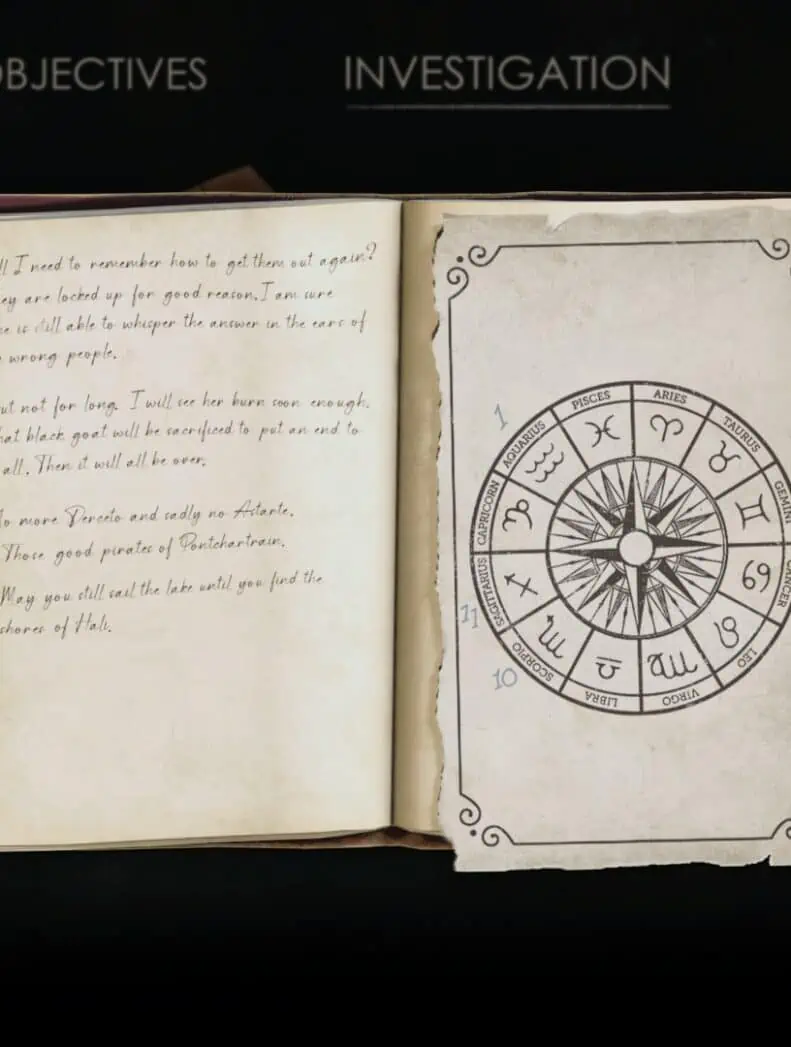 OBJECTIVES
INVESTIGATION
I need to remember how to get them out again?
are locked up for good reason. I am sure
is still able to whisper the answer in the ears of
wrong people.
not for long. I will see her burn soon enough.
that black goat will be sacrificed to put an end to
all. Then it will all be over.
No more Derceto and sadly no Astarte.
Those good pirates of Pontchartrain.
May you still sail the lake until you find the
shores of Hali.
1
PISCES
ARIES
AQUARIUS
TAURUS
CAPRICORN
GEMINI
SAGITTARIUS
CANCER
11
SCORPIO
LEO
10
LIBRA
VIRGO